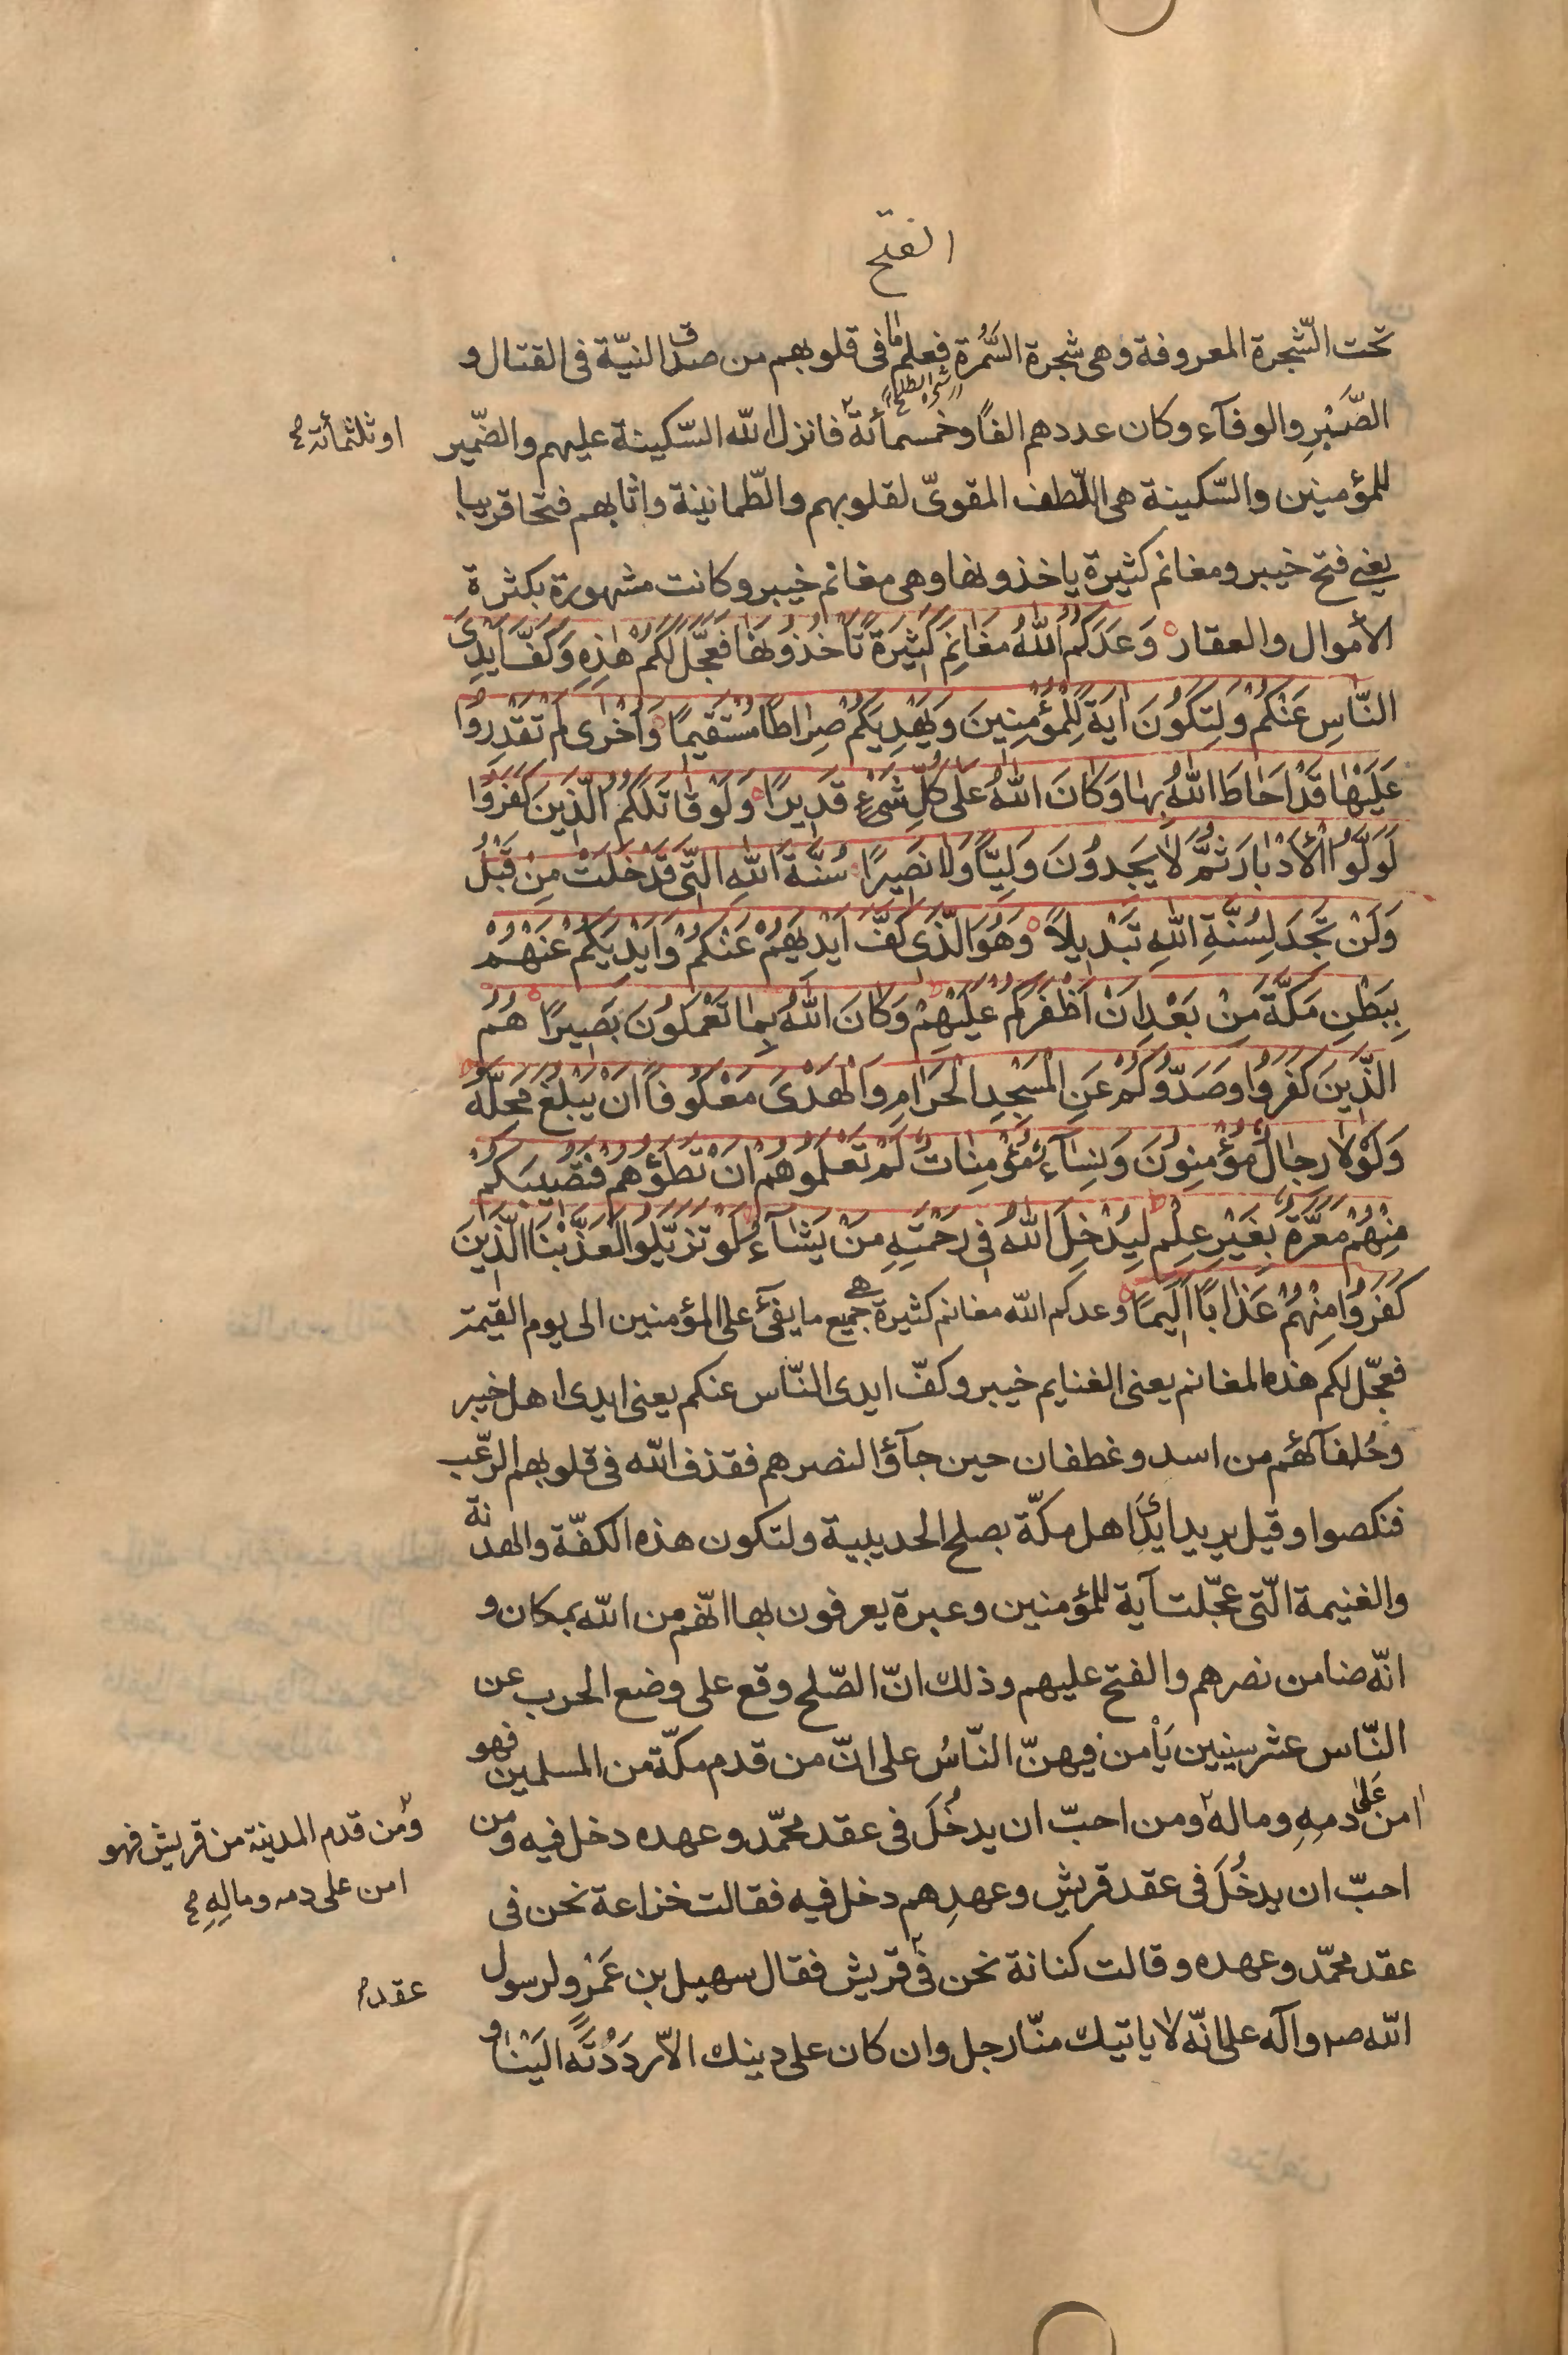 الفتح
تحت الشّجرة المعروفة وهى شجرة السَّمُرة فعلم ما فى قلوبهم من صدق النيّة فى القتال و
الصَّبْرِ والوفآء وكان عددهم الفًا وخمسمأئة فانزل الله السّكينة عليهم والضّمير
او ثلثمأئة
للمؤمنين والسّكينة هى اللّطف المقوىّ لقلوبهم والطّمانينة واثابهم فتحا قريبا
يعنى فتح خيبر ومغانم كثيرة ياخذونها وهى مغانم خيبر وكانت مشهورة بكثرة
الأموال والعقار وَعَدَكُمُ اللهُ مَغَانِمَ كَثِيرَةً تَأْخُذُونَهَا فَعَجَّلَ لَكُمْ هٰذِهِ وَكَفَّ اَيْدِىَ
النَّاسِ عَنْكُمْ وَلِتَكُونَ اٰيَةً لِلْمُؤْمِنِينَ وَيَهْدِيَكُمْ صِرَاطًا مُسْتَقِيمًا وَاُخْرٰى لَمْ تَقْدِرُوا
عَلَيْهَا قَدْ اَحَاطَ اللهُ بِهَا وَكَانَ اللهُ عَلٰى كُلِّ شَىْءٍ قَدِيرًا وَلَوْ قَاتَلَكُمُ الَّذِينَ كَفَرُوا
لَوَلَّوُا الْاَدْبَارَ ثُمَّ لَا يَجِدُونَ وَلِيًّا وَلَا نَصِيرًا سُنَّةَ اللهِ الَّتِى قَدْ خَلَتْ مِنْ قَبْلُ
وَلَنْ تَجِدَ لِسُنَّةِ اللهِ تَبْدِيلًا وَهُوَ الَّذِى كَفَّ اَيْدِيَهُمْ عَنْكُمْ وَاَيْدِيَكُمْ عَنْهُمْ
بِبَطْنِ مَكَّةَ مِنْ بَعْدِ اَنْ اَظْفَرَكُمْ عَلَيْهِمْ وَكَانَ اللهُ بِمَا تَعْمَلُونَ بَصِيرًا هُمُ
الَّذِينَ كَفَرُوا وَصَدُّوكُمْ عَنِ الْمَسْجِدِ الْحَرَامِ وَالْهَدْىَ مَعْكُوفًا اَنْ يَبْلُغَ مَحِلَّهُ
وَلَوْلَا رِجَالٌ مُؤْمِنُونَ وَنِسَاءٌ مُؤْمِنَاتٌ لَمْ تَعْلَمُوهُمْ اَنْ تَطَؤُهُمْ فَتُصِيبَكُمْ
مِنْهُمْ مَعَرَّةٌ بِغَيْرِ عِلْمٍ لِيُدْخِلَ اللهُ فِى رَحْمَتِهِ مَنْ يَشَآءُ لَوْ تَزَيَّلُوا لَعَذَّبْنَا الَّذِينَ
كَفَرُوا مِنْهُمْ عَذَابًا اَلِيمًا وعدكم الله مغانم كثيرة هى جميع ما يفئ على المؤمنين الى يوم القيمة
فعجّل لكم هذه المغانم يعنى الغنايم خيبر وكفّ ايدى النّاس عنكم يعنى ايدى اهل خيبر
وحُلفآئهم من اسد وغطفان حين جآؤا لنصرهم فقذف الله فى قلوبهم الرّعب
فنكصوا وقيل يريد ايدى اهل مكّة بصلح الحديبية ولتكون هذه الكفّة والهدنة
والغنيمة الّتى عجّلت آية للمؤمنين وعبرة يعرفون بها انّهم من الله بمكان و
انّه ضامن نصرهم والفتح عليهم وذلك انّ الصّلح وقع على وضع الحرب عن
النّاس عشر سنيين يَأْمن فيهنّ النّاسُ على انّ من قدم مكّة من المسلمين فهو
امن عَلى دمهِ وماله ومن احبّ ان يدخُلَ فى عقد محمّد وعهده دخل فيه ومن
ومن قدم المدينة من قريش فهو
امن على دمه ومالِهِ
احبّ ان يدخُلَ فى عقد قريش وعهدِهم دخل فيه فقالت خزاعة نحن فى
عقد محمّد وعهده وقالت كنانة نحن فى قريش فقال سهيل بن عَمْرٍو لرسول
عقد
الله صم وآله على انّه لا ياتيك منّا رجل وان كان على دينك الّا رَدَدْتَه اليْنا و